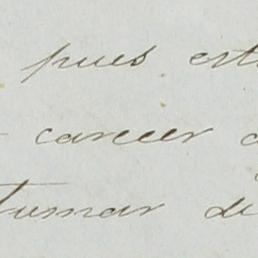 pues est
carecer
tumar de